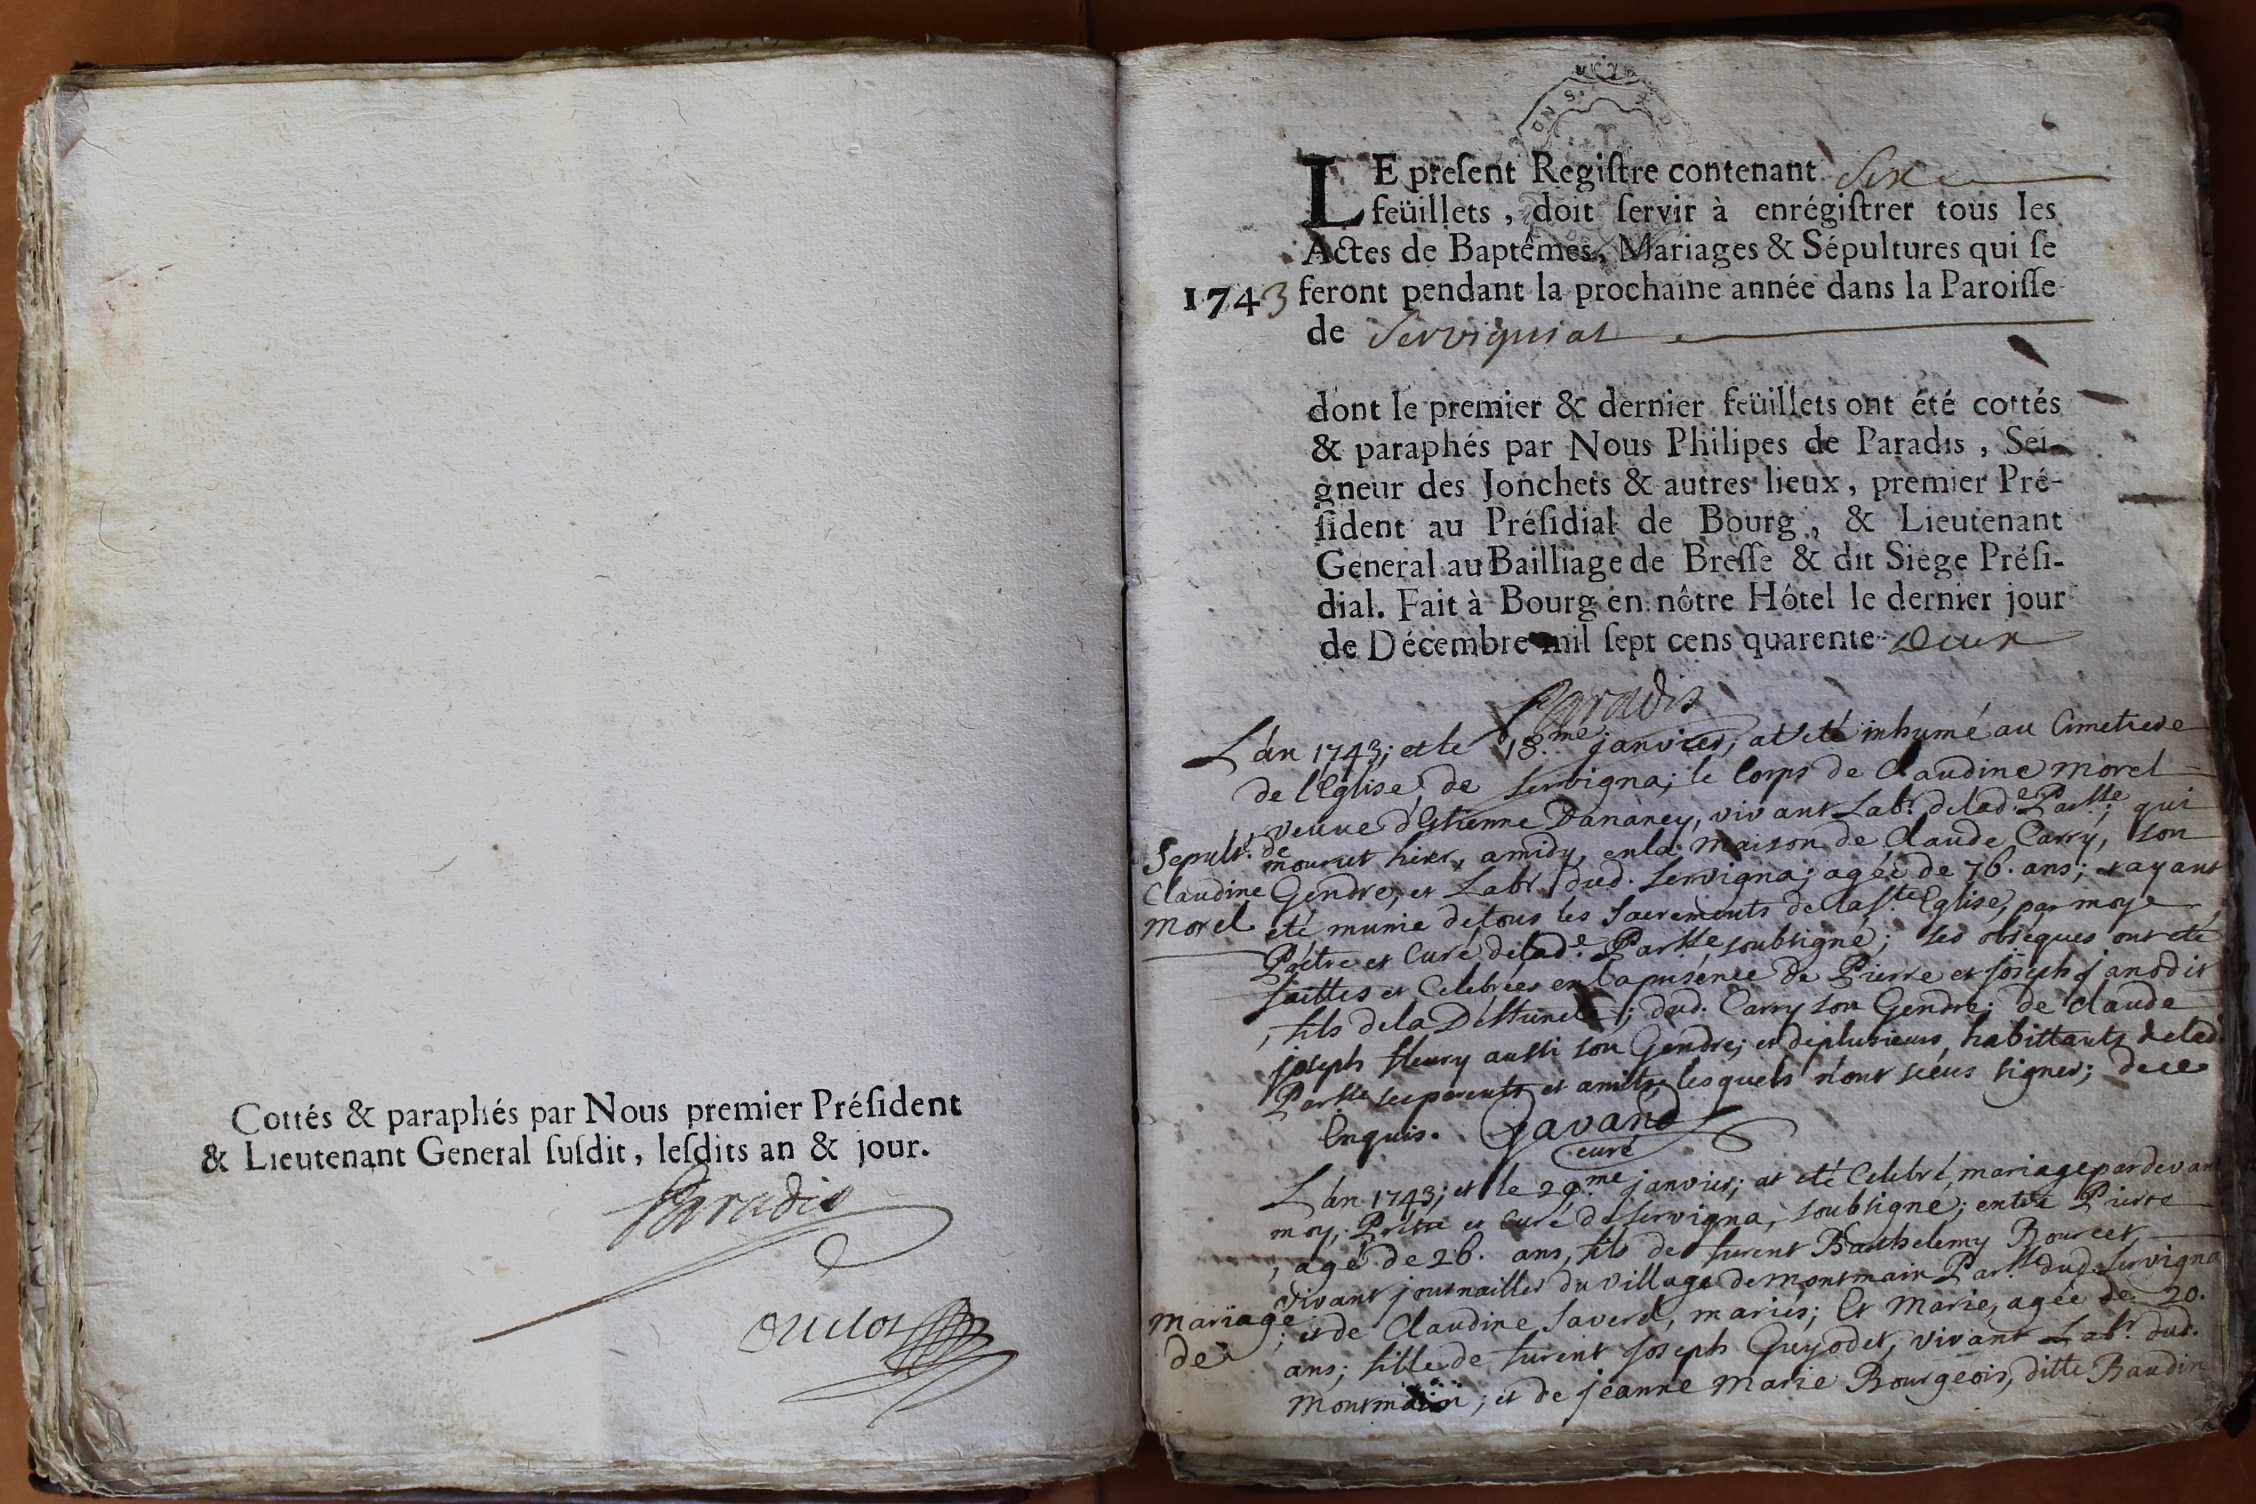 Cottés & paraphés par Nous premier Préſident
& Lieutenant General ſuſdit, leſdits an & jour.
Paradis
Duclos
LE preſent Regiſtre contenant Six
feüillets, doit ſervir à enrégiſtrer tous les
Actes de Baptêmes, Mariages & Sépultures qui ſe
1743 feront pendant la prochaine année dans la Paroiſſe
de Servignat
dont le premier & dernier feüillets ont été cottés
& paraphés par Nous Philipes de Paradis, Sei-
gneur des Jonchets & autres lieux, premier Pré-
ſident au Préſidial de Bourg, & Lieutenant
General au Bailliage de Breſſe & dit Siége Préſi-
dial. Fait à Bourg en nôtre Hôtel le dernier jour
de Décembre mil ſept cens quarente Deux
Paradis
L'an 1743; et le 18.me janvier; at eté inhumé au Cimetiere
de l'Eglise de Servigna; le Corps de Claudine Morel
veuve d'Etienne Dananey, vivant Labr. de lad.e Parsse; qui
mourut hier, a midy, en la maison de Claude Carry, son
Gendre, et Labr. dud. Servigna; agée de 76. ans; et ayant
eté munie de tous les Sacrements de la Ste Eglise, par moy
Prêtre et Curé de lad.e Parsse soubsigné; ses obséques ont eté
faittes et Celebrées en la présence de Pierre et joseph janodit
, fils de la Deffuncte; dud. Carry son Gendre; de Claude
joseph fleury aussi son Gendre; et de plusieurs habittants de lad
Parsse ses parents et amits, lesquels n'ont scéus signer; de ce
Enquis. Gavand
curé
Sepult. de
Claudine
Morel
L'an 1743; et le 29.me janvier; at eté Celebré, mariage par devant
moy, Prêtre et Curé de Servigna, soubsigné; entre Pierre
, agé de 26. ans, fils de furent Barthelemy Bourcet,
vivant journaillier du village de montmain Parsse dud. Servigna
; et de Claudine Saverel, mariés; Et Marie, agée de 20.
ans; fille de furent Joseph Guyodet, vivant Labr. dud.
Montmain; et de jeanne Marie Bourgeois, ditte Baudin
Mariage
de